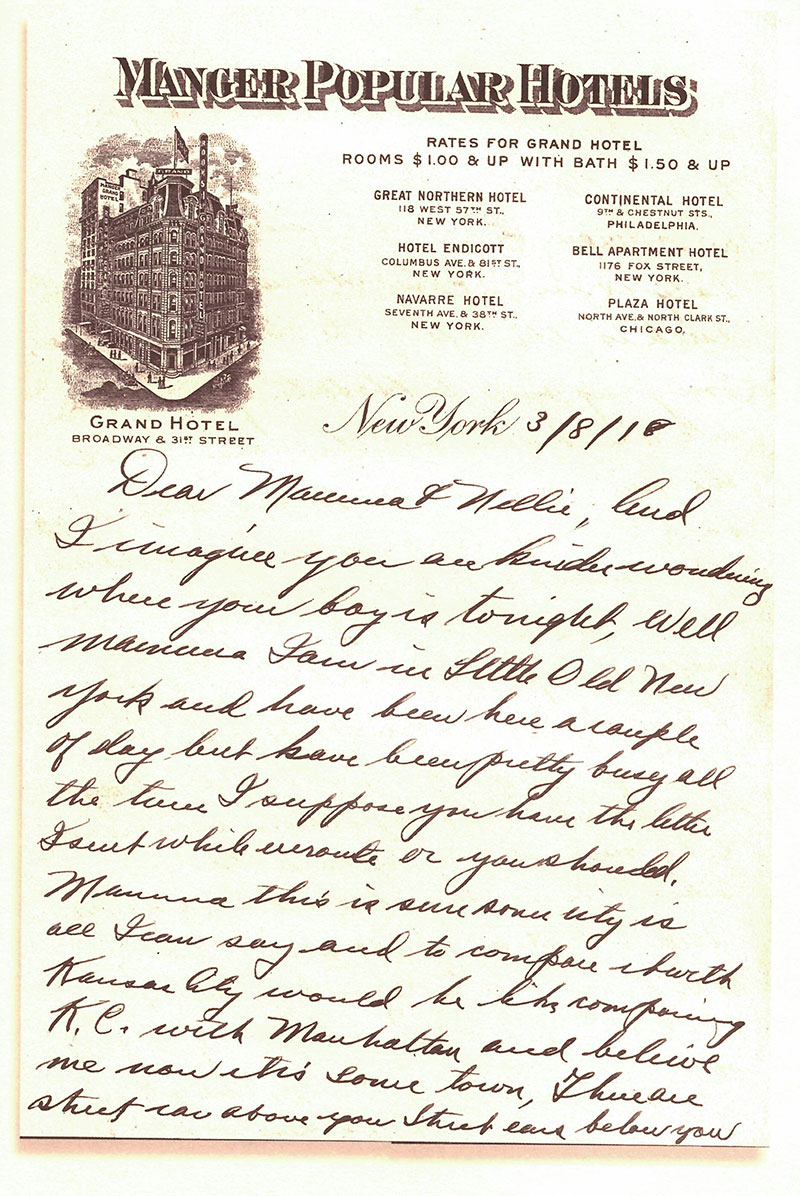 MANGER POPULAR HOTELS
RATES FOR GRAND HOTEL
ROOMS $1.00 & UP WITH BATH $1.50 & UP
GREAT NORTHERN HOTEL
118 WEST 57TH ST.,
NEW YORK.
CONTINENTAL HOTEL
9TH & CHESTNUT STS.,
PHILADELPHIA.
HOTEL ENDICOTT
COLUMBUS AVE. & 81ST ST.,
NEW YORK.
BELL APARTMENT HOTEL
1176 FOX STREET,
NEW YORK.
NAVARRE HOTEL
SEVENTH AVE. & 38TH ST.,
NEW YORK.
PLAZA HOTEL
NORTH AVE. & NORTH CLARK ST.,
CHICAGO.
GRAND
MANGER
GRAND
HOTEL
GRAND HOTEL
BROADWAY & 31ST STREET
New York 3/8/18
Dear Mamma & Nellie, And
I imagine you are kinder wondering
where your boy is tonight, Well
mamma I am in Little Old New
york and have been here a couple
of day but have been pretty busy all
the time I suppose you have the letter
I sent while enroute or you should.
Mamma this is sure some city is
all I can say and to compare it with
Kansas City would be like comparing
K.C. with Manhattan and believe
me now it's some town, There are
street car above you Street cars below you